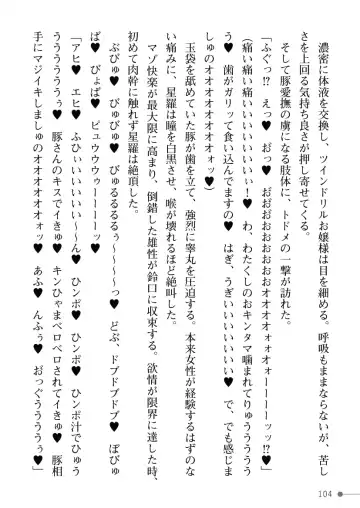 濃密に体液を交換し、ツインドリルお嬢様は目を細める。呼吸もままならないが、苦し
さを上回る気持ち良さが押し寄せてくる。
そして豚愛撫の虜になる肢体に、トドメの一撃が訪れた。
「ふぐっ!? えっ♥ おっ♥ おおおおおおおおオオオオォォオォーーーーッッ!?♥
(痛い痛い痛いィイイイイイイ！♥ わ、わたくしのおキンタマ噛まれてりゅうううう
う♥ 歯がガリッて食い込んでますの♥ はぎ、うぎいいいいいい♥ で、でも感じま
しゅのオオオオオオォォ♥)」
玉袋を舐めていた豚が歯を立て、強烈に睾丸を圧迫する。本来女性が経験するはずのな
い痛みに、星羅は瞳を白黒させ、喉が嗄れるほど絶叫した。
マゾ快楽が最大限に高まり、倒錯した雄性が鈴口に収束する。欲情が限界に達した時、
初めて肉幹に触れず星羅は絶頂した。
ぶびゅ♥ びゅびゅ♥ びゅるるるるぅ～～～～っ♥ どぷ、ドプドプドプ♥ ぼびゅ
ば♥ びょば♥ ピュウウウゥーーーーッ♥
「アヒ♥ エヒ♥ ふひぃいいいいい～～ん♥ ひンポ♥ ひンポ♥ ひンポ汁でりゅ
うううううぅ♥ 豚さんのキスでイきゅ♥ キンひゃまベロベロされてイきゅ♥ 豚相
手にマジイキしましゅのオオオオオオォッ♥ あふ♥ んふぅ♥ おっぐぅうううぅ♥」
104